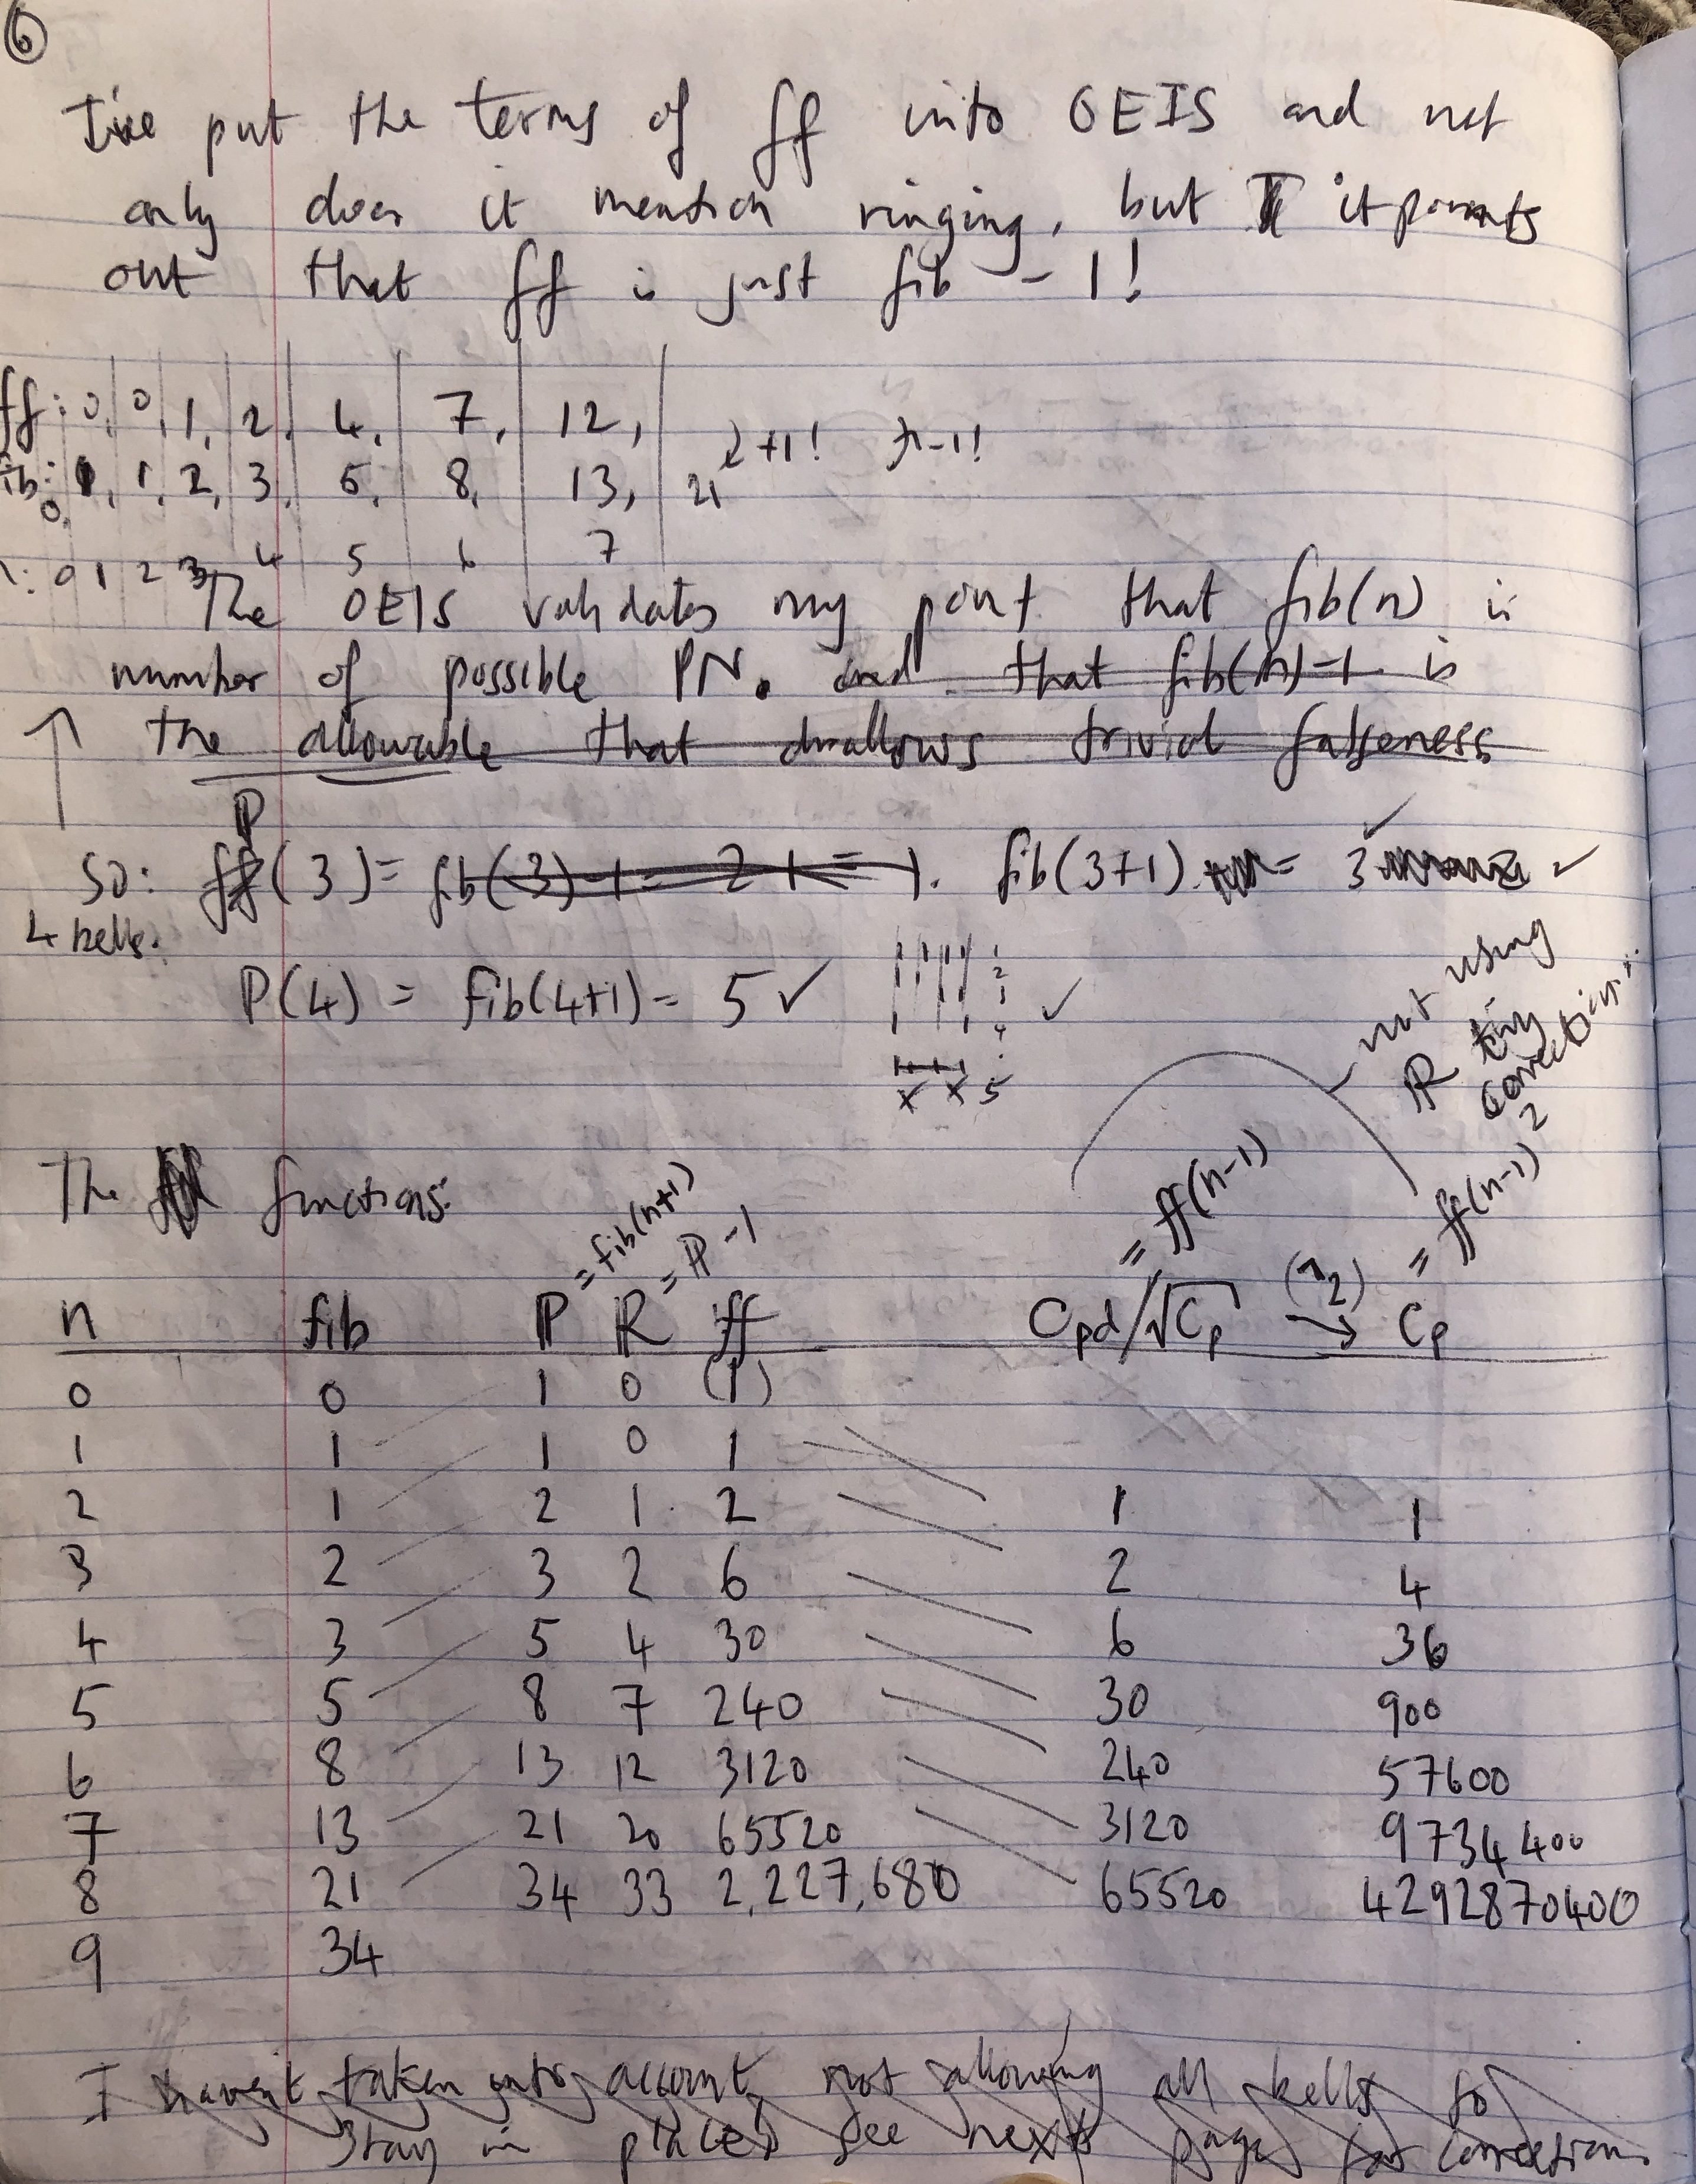 6
I've put the terms of ff into OEIS and not
only does it mention ringing, but it points
out that ff is just fib - 1!
ff: 0, 0, 1, 2, 4, 7, 12,
+1! -1!
fib: 0, 1, 1, 2, 3, 5, 8, 13, 21
n: 0 1 2 3 4 5 6 7
The OEIS validates my point that fib(n) is
number of possible PN. and that fib(n)-1 is
the allowable that disallows trivial falseness
so: P(3) = fib(3)-1 = 2-1 = 1. fib(3+1) = 3 ✓
4 bells.
P(4) = fib(4+1) = 5 ✓
1
2
3
4
x x 5
✓
not using
R tiny
correction..
The functions:
= fib(n+1) = P-1 = ff(n-1) = ff(n-1)²
n fib P R ff Cpd/√Cp (^2) → Cp
0 0 1 0 (1)
1 1 1 0 1
2 1 2 1 2 1 1
3 2 3 2 6 2 4
4 3 5 4 30 6 36
5 5 8 7 240 30 900
6 8 13 12 3120 240 57600
7 13 21 20 65520 3120 9734400
8 21 34 33 2,227,680 65520 4292870400
9 34
I haven't taken into account not allowing all bells to
stay in place! see next page for correction.